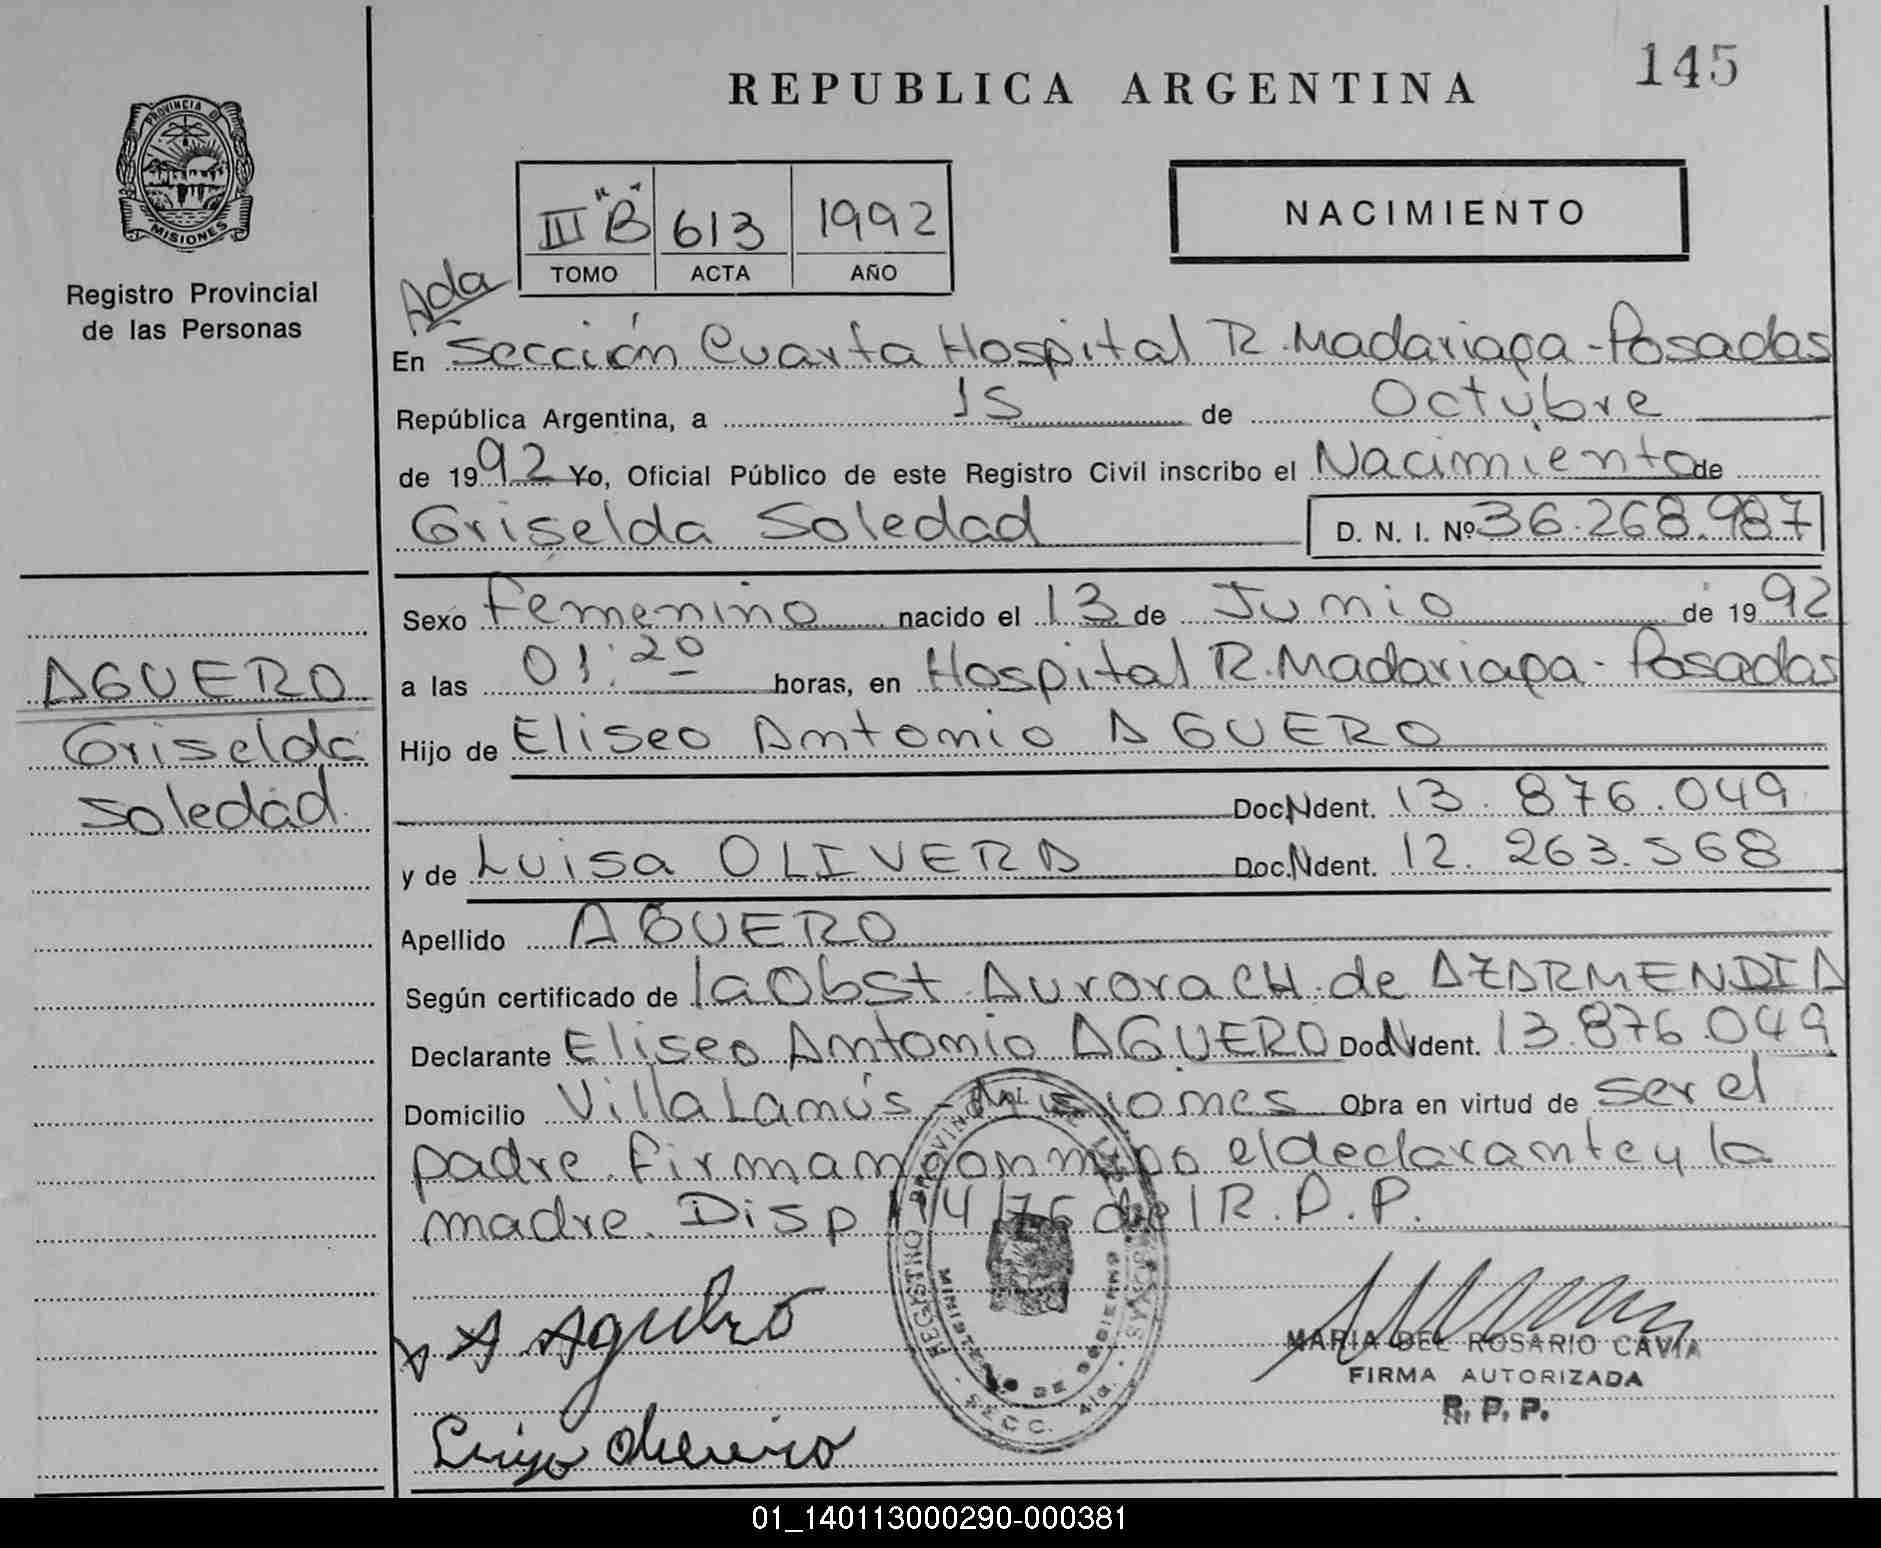 145
REPUBLICA ARGENTINA
PROVINCIA DE
MISIONES
Registro Provincial
de las Personas
III "B" 613 1992
TOMO ACTA AÑO
NACIMIENTO
Ada
En Sección Cuarta Hospital R. Madariaga - Posadas
República Argentina, a 15 de Octubre
de 1992 Yo, Oficial Público de este Registro Civil inscribo el Nacimiento de
Griselda Soledad D. N. I. Nº 36.268.987
Sexo Femenino nacido el 13 de Junio de 1992
a las 01:20 horas, en Hospital R. Madariaga - Posadas
AGUERO
Griselda
Soledad
Hijo de Eliseo Antonio AGUERO
Doc. N Ident. 13.876.049
y de Luisa OLIVERA Doc. N Ident. 12.263.568
Apellido AGUERO
Según certificado de la Obst. Aurora CH. de AZARMENDIA
Declarante Eliseo Antonio AGUERO Doc. N Ident. 13.876.049
Domicilio Villa Lanús - Misiones Obra en virtud de ser el
padre. Firman conmigo el declarante y la
madre. Disp 114/76 del R.P.P.
REGISTRO PROVINCIAL DE LAS PERSONAS
MINISTERIO DE GOBIERNO
SECC. 4ta.
A Aguero
MARIA DEL ROSARIO CAVIA
FIRMA AUTORIZADA
R. P. P.
01_140113000290-000381